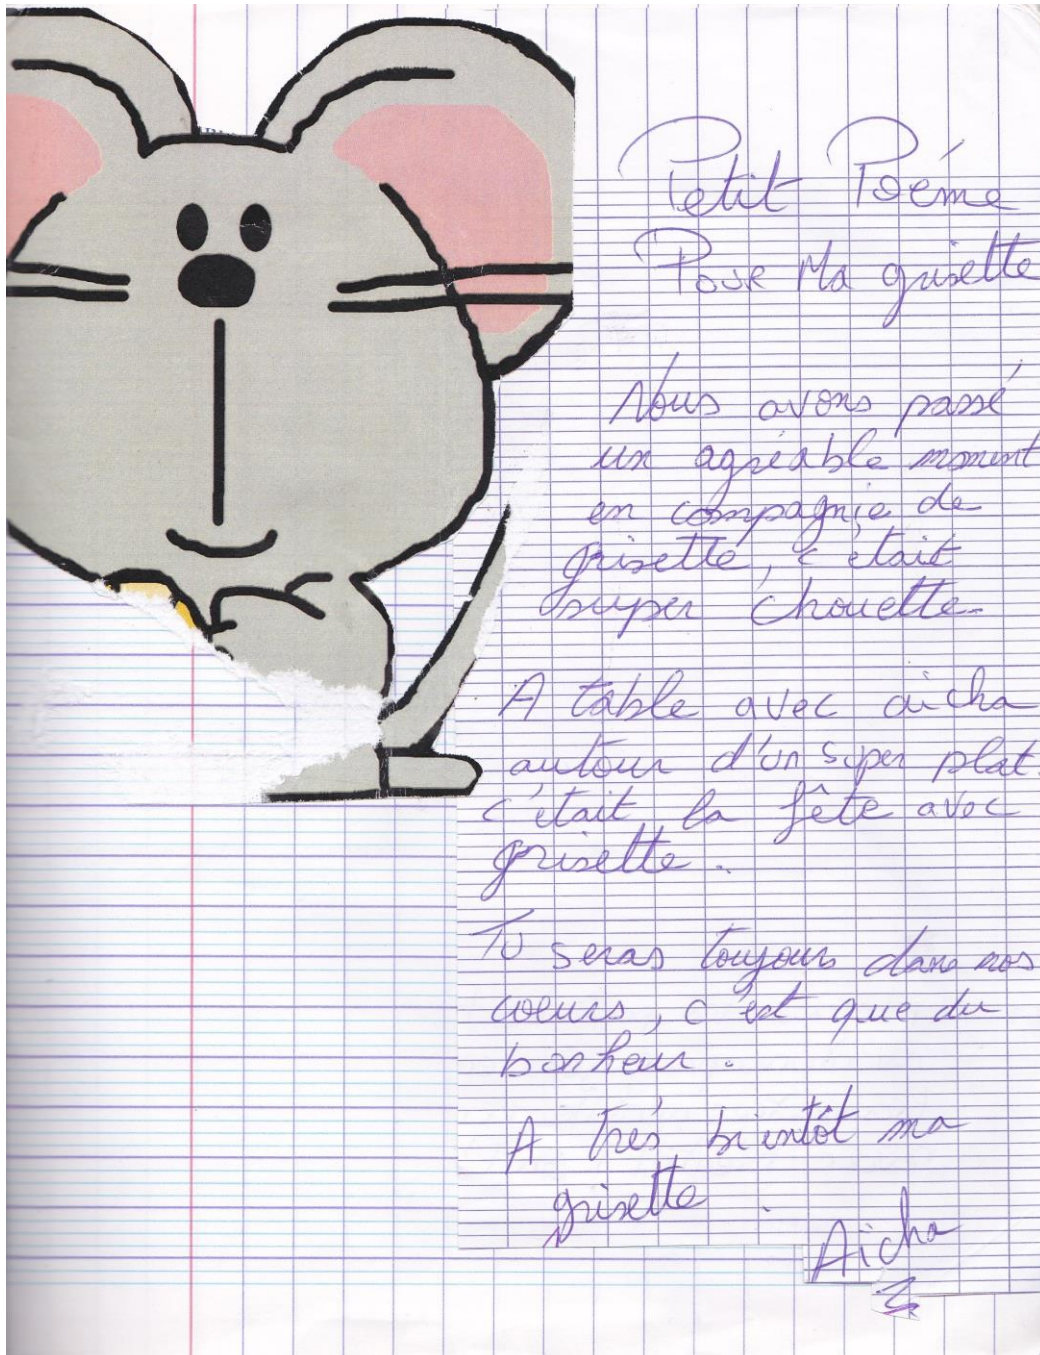 Petit Poéme
Pour Ma grisette
Nous avons passé
un agréable moment
en compagnie de
grisette, c'était
super chouette.
A table avec aicha
autour d'un super plat.
c'était la fête avec
grisette.
Tu seras toujours dans nos
coeurs, c'est que du
bonheur.
A trés bientôt ma
grisette.
Aicha